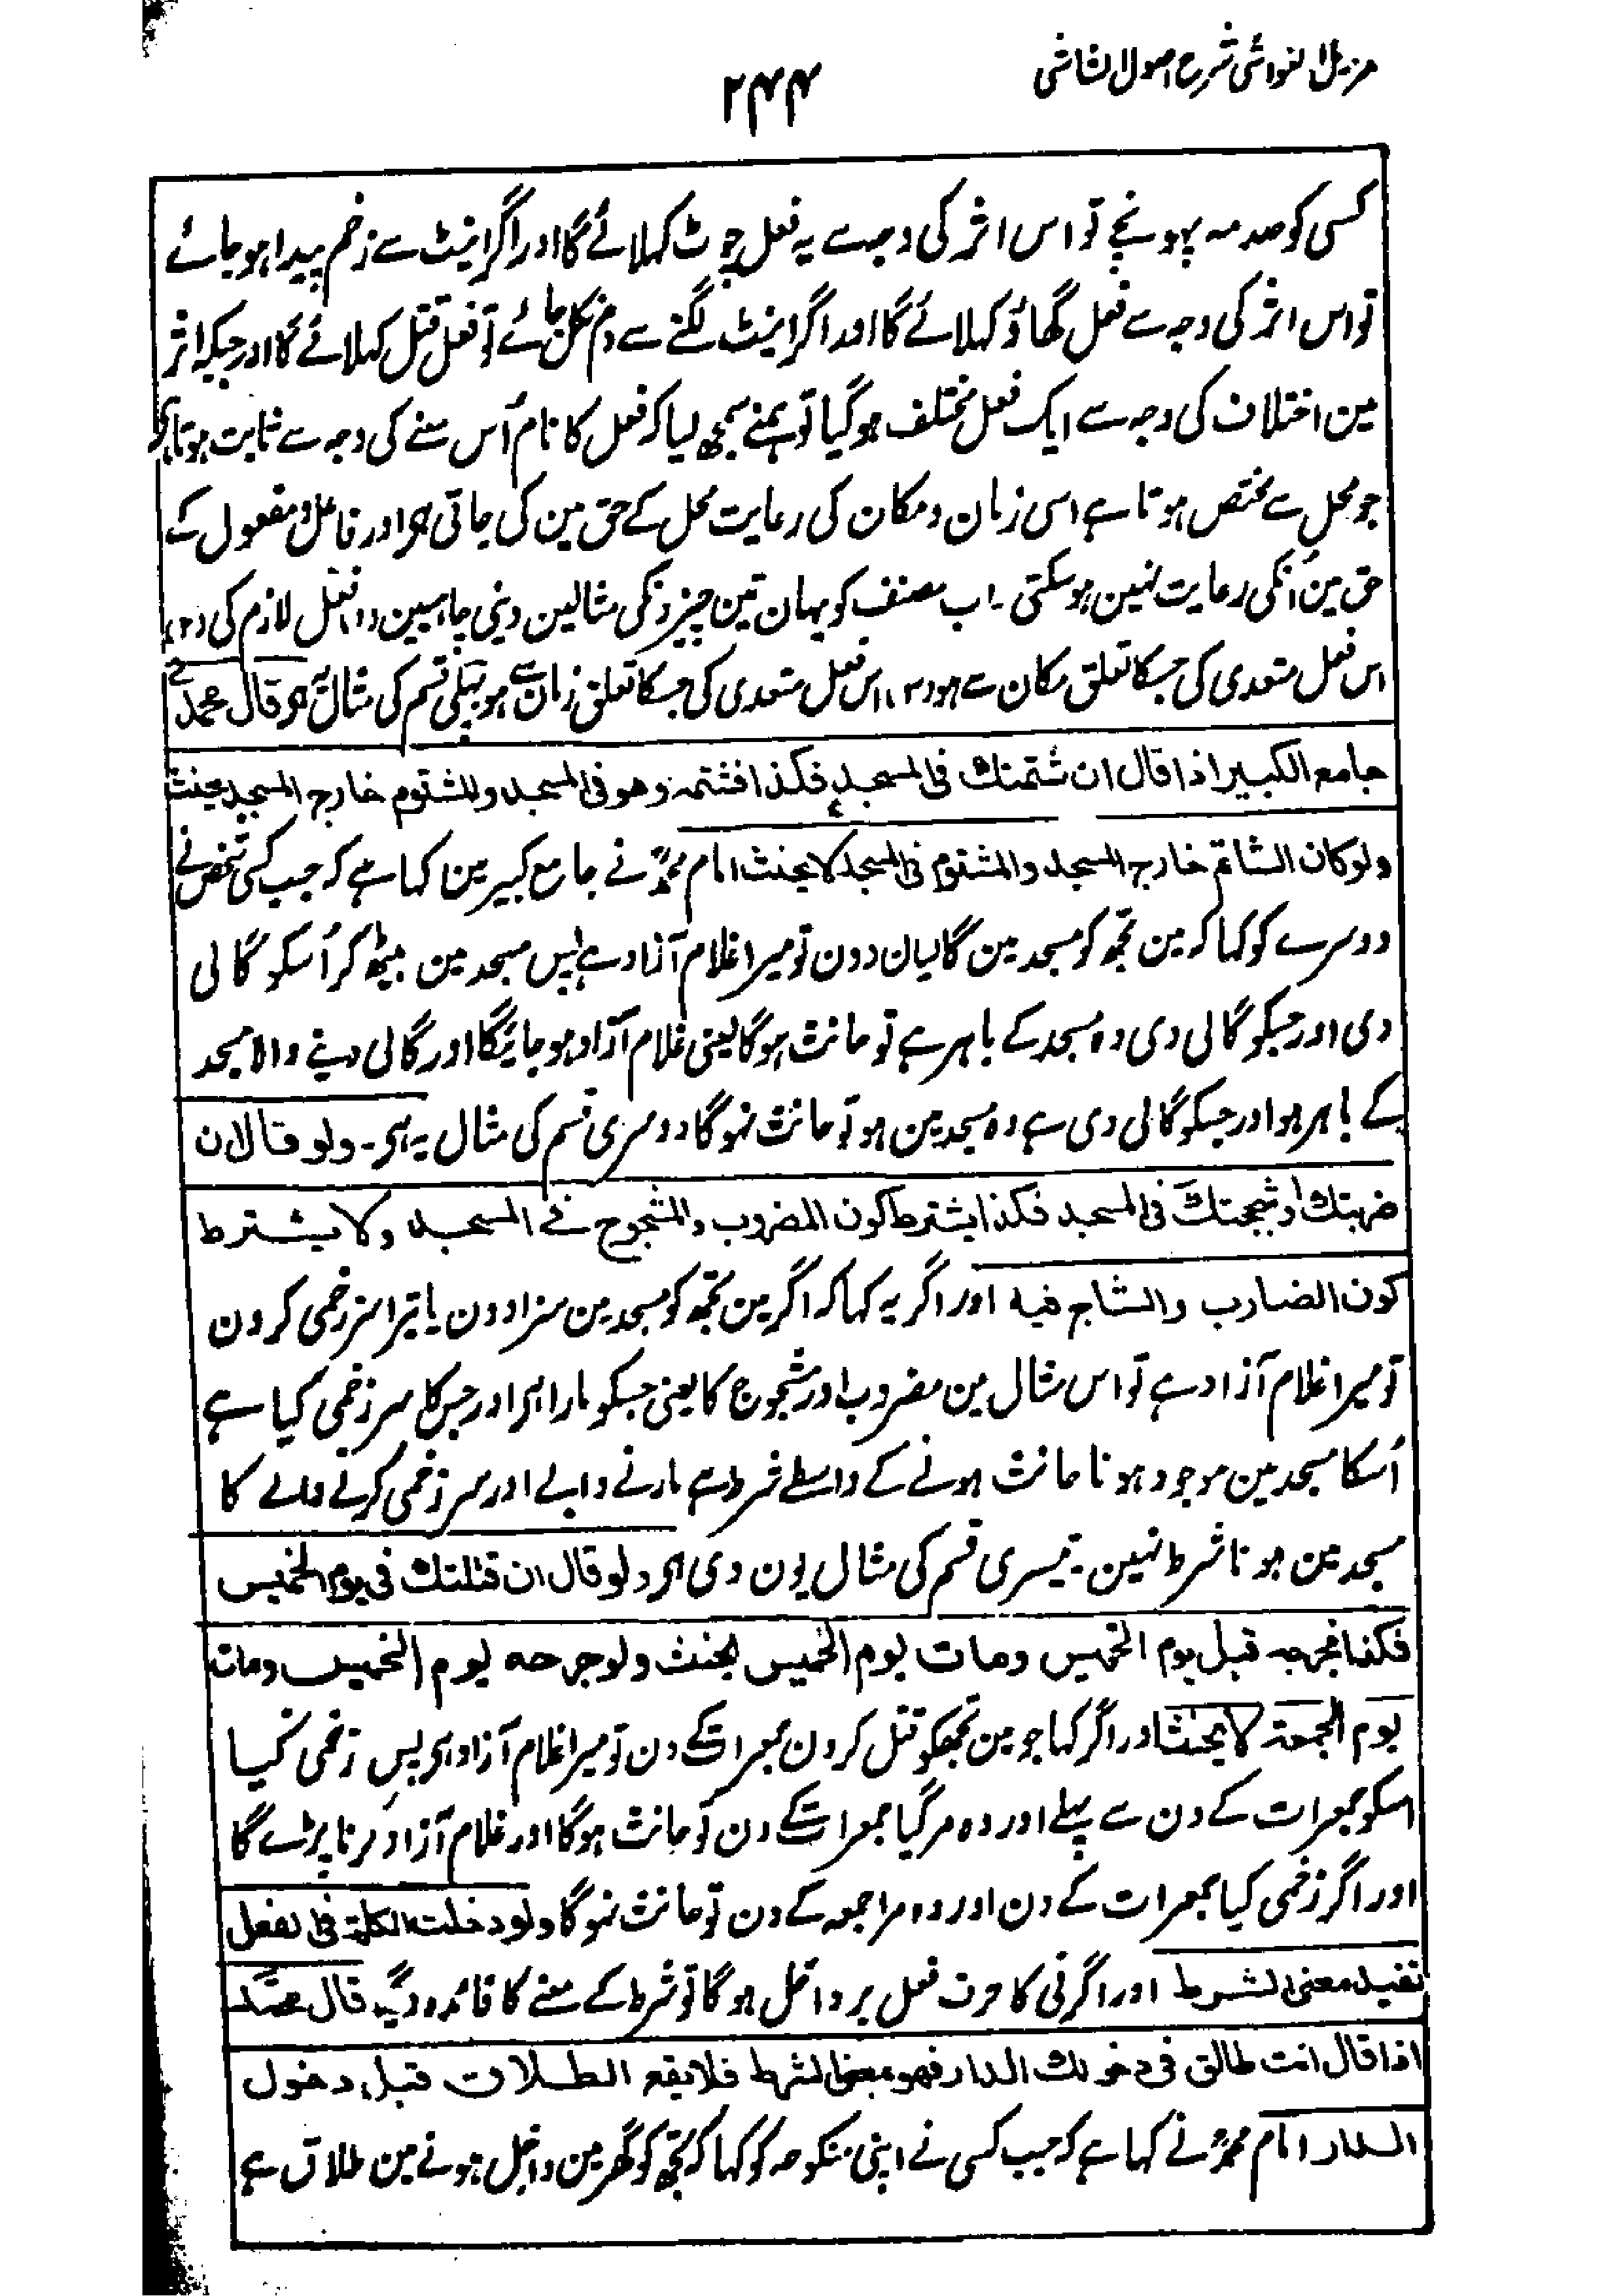 مزیل الغواشی شرح اصول الشاشی
۲۴۴
کسی کو صدمہ پہونچے تو اس اثر کی وجہ سے یہ فعل چوٹ کہلائے گا اور اگر اینٹ سے زخم پیدا ہو جائے
تو اس اثر کی وجہ سے فعل گھاؤ کہلائے گا اور اگر اینٹ لگنے سے دم نکل جائے تو فعل قتل کہلائے گا اور جبکہ اثر
مین اختلاف کی وجہ سے ایک فعل مختلف ہو گیا تو ہمنے سمجھ لیا کہ فعل کا نام اُس معنے کی وجہ سے ثابت ہوتا ہی
جو محل سے مختص ہوتا ہے اسی زمان و مکان کی رعایت محل کے حق مین کی جاتی ہی اور فاعل و مفعول کے
حق مین اُنکی رعایت نہین ہو سکتی ۔ اب مصنف کو یہان تین چیزونکی مثالین دینی چاہیین (۱) فعل لازم کی (۲)
اس فعل متعدی کی جسکا تعلق مکان سے ہو (۳) اس فعل متعدی کی جسکا تعلق زمان سے ہو پہلی قسم کی مثال یہ ہی قال محمد فے
جامع الکبیر اذا قال ان شتمتك فی المسجد فکذا فشتمہ وهو فی المسجد والمشتوم خارج المسجد یحنث
ولو کان الشاتم خارج المسجد والمشتوم فی المسجد لا یحنث امام محمدؒ نے جامع کبیر مین کہا ہے کہ جب کسی شخص نے
دوسرے کو کہا کہ مین تجھ کو مسجد مین گالیان دون تو میرا غلام آزاد ہے پس مسجد مین بیٹھ کر اُسکو گالی
دی اور جسکو گالی دی وہ مسجد کے باہر ہے تو حانث ہوگا یعنی غلام آزاد ہو جائیگا اور گالی دینے والا مسجد
کے باہر ہو اور جسکو گالی دی ہے وہ مسجد مین ہو تو حانث نہوگا دوسری قسم کی مثال یہ ہی ۔ ولو قال ان
ضربتك او شججتك فی المسجد فکذا یشترط کون المضروب والمشجوج فے المسجد ولا یشترط
کون الضارب والشاج فیه اور اگر یہ کہا کہ اگر مین تجھ کو مسجد مین سزا دون یا تیرا سر زخمی کرون
تو میرا غلام آزاد ہے تو اس مثال مین مضروب اور مشجوج کا یعنی جسکو مارا ہی اور جس کا سر زخمی کیا ہے
اُسکا مسجد مین موجود ہونا حانث ہونے کے واسطے شرط ہے مارنے والے اور سر زخمی کرنے والے کا
مسجد مین ہونا شرط نہین ۔ تیسری قسم کی مثال یون دی ہی ولو قال ان قتلتك فی یوم الخمیس
فکذا فجرحہ قبل یوم الخمیس ومات یوم الخمیس یحنث ولو جرحه یوم الخمیس ومات
یوم الجمعة لا یحنث اور اگر کہا جو مین تجھکو قتل کرون جمعرات کے دن تو میرا غلام آزاد ہی پس زخمی کیا
اسکو جمعرات کے دن سے پہلے اور وہ مر گیا جمعرات کے دن تو حانث ہوگا اور غلام آزاد کرنا پڑے گا
اور اگر زخمی کیا جمعرات کے دن اور وہ مرا جمعہ کے دن تو حانث نہوگا ولو دخلت الکلمة فی الفعل
تفید معنی الشرط اور اگر فی کا حرف فعل پر داخل ہوگا تو شرط کے معنے کا فائدہ دیگا قال محمد
اذا قال انت طالق فی دخولك الدار فهو بمعنی الشرط فلا یقع الطلاق قبل دخول
الدار امام محمدؒ نے کہا ہے کہ جب کسی نے اپنی منکوحہ کو کہا کہ تجھ کو گھر مین داخل ہونے مین طلاق ہے